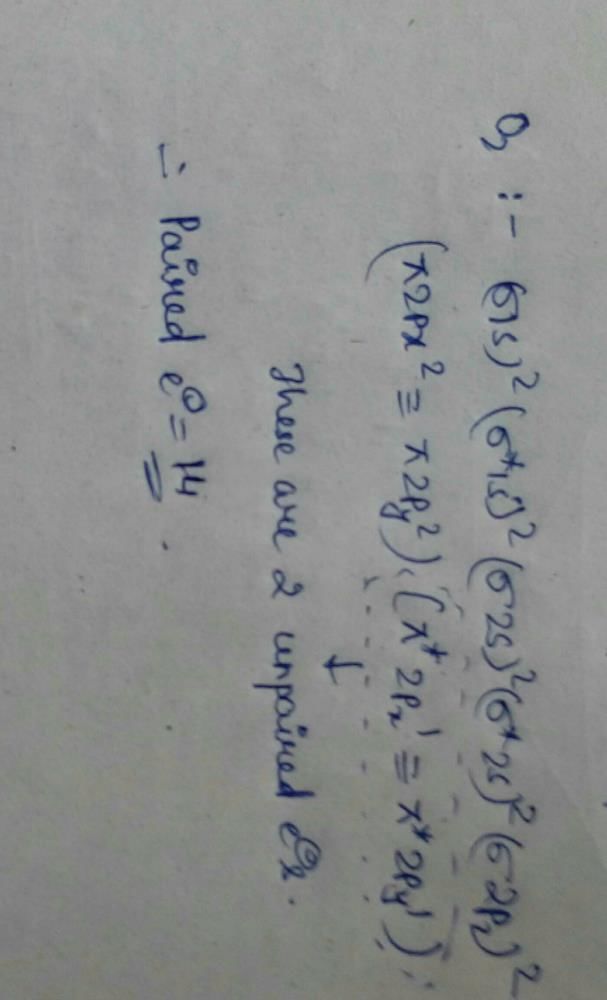 O₂ :- σ1s)² (σ*1s)² (σ2s)² (σ*2s)² (σ2pz)²
(π2px² = π2py²). (π*2px¹ = π*2py¹)
↓
These are 2 unpaired e⊖s.
∴ Paired e⊖ = 14.